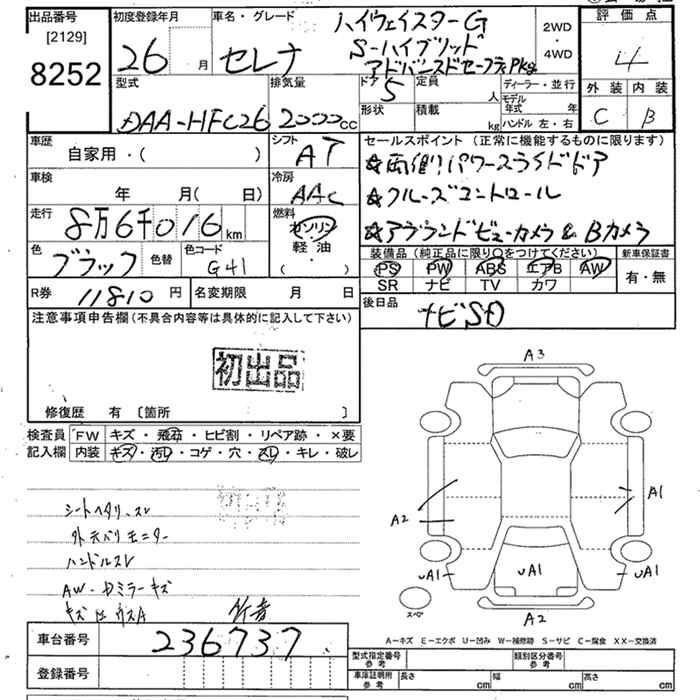 出品番号 初度登録年月 車名・グレード 評価点
[2129] ハイウェイスターG 2WD
8252 26 月 セレナ S-ハイブリッド ・ 4
アドバンスドセーフティPkg 4WD
型式 排気量 ドア 5 定員 人 ディーラー・並行 外装 内装
DAA-HFC26 2000cc 形状 積載 kg モデル年式 年 C B
ハンドル 左・右
車歴 シフト セールスポイント(正常に機能するものに限ります)
自家用・( ) AT ☆両側パワースライドドア
車検 冷房 ☆クルーズコントロール
年 月( 日) AAC
走行 燃料 ☆アラウンドビューカメラ & Bカメラ
8万6千016km ガソリン
軽・油
・( )
色 色替 色コード 装備品(純正品に限り○をつけてください) 新車保証書
ブラック G41 PS PW ABS エアB AW 有・無
SR ナビ TV カワ
R券 11810円 名変期限 月 日 後日品
ナビSD
注意事項申告欄(不具合内容等は具体的に記入して下さい)
初出品
修復歴 有 [箇所 ]
検査員 FW キズ・飛石・ヒビ割・リペア跡・×要
記入欄 内装 キズ・汚レ・コゲ・穴・スレ・キレ・破レ
A3
シートヘタリ.スレ
外ハバリモニター
ハンドルスレ
AW・ドミラーキズ
A1
A2
UA1 UA1 UA1
スペア
A2
A-キズ E-エクボ U-凹み W-補修跡 S-サビ C-腐食 XX-交換済
車台番号 236737
登録番号
型式指定番号 参考 類別区分番号 参考
車庫証明用 参考 長さ cm 幅 cm 高さ cm